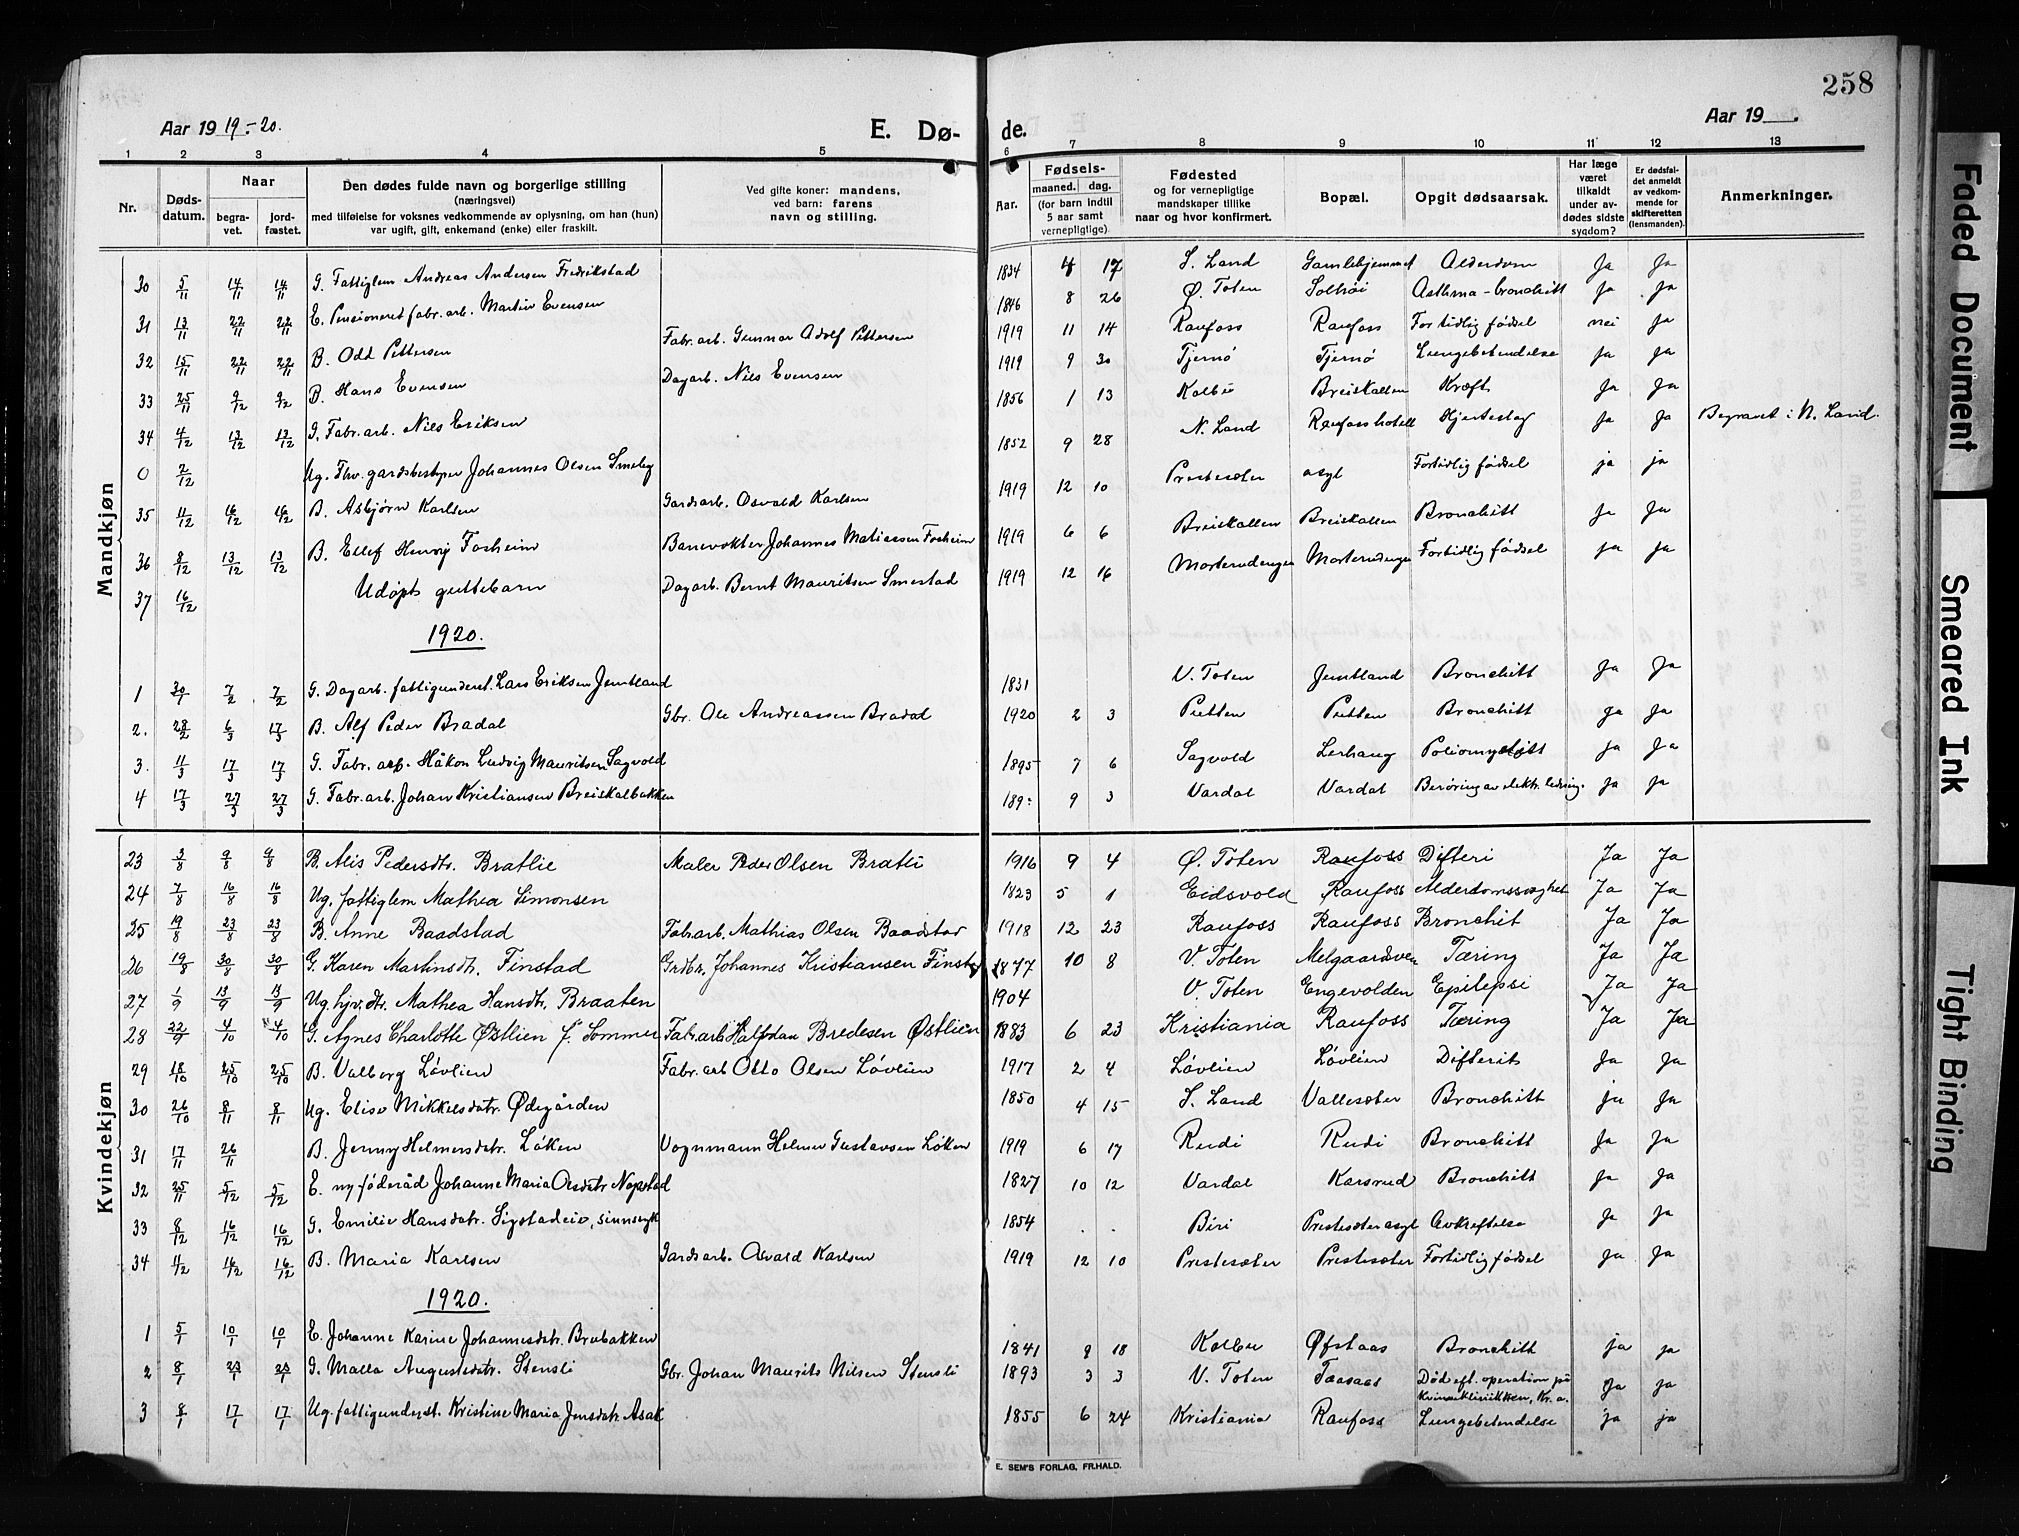 258
Aar 1919-20.
E. Dø-
de.
Aar 19
1 2 3 4 5 6 7 8 9 10 11 12 13
Nr.
Døds-
datum.
Naar
begra-
vet.
jord-
fæstet.
Den dødes fulde navn og borgerlige stilling
(næringsvei)
med tilføielse for voksnes vedkommende av oplysning, om han (hun)
var ugift, gift, enkemand (enke) eller fraskilt.
Ved gifte koner: mandens,
ved barn: farens
navn og stilling.
Aar.
Fødsels-
maaned. dag.
(for barn indtil
5 aar samt
vernepligtige).
Fødested
og for vernepligtige
mandskaper tillike
naar og hvor konfirmert.
Bopæl.
Opgit dødsaarsak.
Har læge
været
tilkaldt
under av-
dødes sidste
sygdom?
Er dødsfal-
det anmeldt
av vedkom-
mende for
skifteretten
(lensmanden).
Anmerkninger.
Mandkjøn
30 5/11 14/11 14/11 G. Fattiglem Andreas Andersen Fredrikstad 1834 4 17 S. Land Gamlehjemmet Alderdom Ja Ja
31 13/11 22/11 22/11 E. Pensioneret fabr. arb. Martin Evensen 1846 8 26 Ø. Toten Solhøi Asthma-bronchitt Ja Ja
32 15/11 22/11 22/11 B. Odd Pettersen Fabr. arb. Gunnar Adolf Pettersen 1919 11 14 Raufoss Raufoss For tidlig fødsel nei Ja
33 25/11 9/12 9/12 B. Hans Evensen Dagarb. Nils Evensen 1919 9 30 Tjernø Tjernø Lungebetendelse Ja Ja
34 4/12 13/12 13/12 G. Fabr. arb. Nils Eriksen 1856 1 13 Kolbu Breiskallen Kræft Ja Ja
0 2/12 Ug. Fhv. gardsbestyrer Johannes Olsen Smeby 1852 9 28 N. Land Raufoss hotell Hjerteslag Ja Ja Begravet i N. Land.
35 11/12 16/12 16/12 B. Asbjørn Karlsen Gardsarb. Osvald Karlsen 1919 12 10 Prestesæter asyl Fortidlig fødsel ja ja
36 8/12 13/12 13/12 B. Ellef Henvig Fosheim Banevokter Johannes Matiassen Fosheim 1919 6 6 Breiskallen Breiskallen Bronchitt Ja Ja
37 16/12 Udøpt guttebarn Dagarb. Bernt Mauritsen Smestad 1919 12 16 Morterudengen Morterudengen Fortidlig fødsel Ja Ja
1920.
1 30/1 7/2 7/2 G. Dagarb. fattigunderst. Lars Eriksen Jemtland 1831 V. Toten Jemtland Bronchitt Ja Ja
2. 28/2 6/3 17/3 B. Alf Peder Bradal Gbr. Ole Andreassen Bradal 1920 2 3 Putten Putten Bronchitt ja Ja
3. 11/3 17/3 17/3 G. Fabr. arb. Håkon Ludvig Mauritsen Sagvold 1895 7 6 Sagvold Lerhaug Poliomyelitt Ja Ja
4 17/3 27/3 27/3 G. Fabr. arb. Johan Kristiansen Breiskalbakken 9 3 Vardal Vardal Berøring av elektr. ledning. Ja Ja
Kvindekjøn
23 3/8 9/8 9/8 B. Alis Pedersdtr. Bratlie Maler Peder Olsen Bratli 1916 9 4 Ø. Toten Raufoss Difteri Ja Ja
24 7/8 16/8 16/8 Ug. fattiglem Mathea Simonsen 1823 5 1 Eidsvold Raufoss Alderdomssvaghet Ja Ja
25 19/8 23/8 23/8 B. Anne Baadstad Fabr. arb. Mathias Olsen Baadstad 1918 12 23 Raufoss Raufoss Bronchit Ja Ja
26 19/8 30/8 30/8 G. Karen Martinsdtr. Finstad Grdbr. Johannes Kristiansen Finstad 1877 10 8 V. Toten Melgaardsven Tæring Ja Ja
27 1/9 13/9 13/9 Ug. hjv. dtr. Mathea Hansdtr. Braaten 1904 V. Toten Engevolden Epilepsi Ja Ja
28 22/9 4/10 4/10 G. Agnes Charlotte Østlien f. Sommer Fabr. arb. Halfdan Bredesen Østlien 1883 6 23 Kristiania Raufoss Tæring Ja Ja
29 18/10 25/10 25/10 B. Valborg Løvlien Fabr. arb Otto Olsen Løvlien 1917 2 4 Løvlien Løvlien Difterit Ja Ja
30 26/10 8/11 8/11 Ug. Elise Mikkelsdatr. Ødegården 1850 4 15 S. Land Vallesæter Bronchitt ja Ja
31 17/11 26/11 B. Jenny Helmersdatr. Løken Vognmann Helmer Gustavsen Løken 1919 6 17 Rudi Rudi Bronchitt Ja Ja
32 25/11 5/12 5/12 E. ny føderåd Johanne Maria Olsdatr. Nopstad 1827 10 12 Vardal Karsrud Bronchitt Ja Ja
33 8/12 16/12 16/12 G. Emilie Hansdatr. Sigstadeie, sinnsyk 1854 . . Biri Prestesæter asyl Avkreftelse Ja Ja
34 11/12 16/12 16/12 B. Maria Karlsen Gardsarb. Osvald Karlsen 1919 12 10 Prestesæter Prestesæter Fortidlig fødsel Ja Ja
1920.
1 5/1 10/1 10/1 E. Johanne Karine Johannesdatr. Brubakken 1841 9 18 Kolbu Øfstaas Bronchitt ja ja
2 8/1 G. Malla Augustedatr. Stensli Gbr. Johan Maurits Nilsen Stensli 1893 3 3 V. Toten Taasaas Død eft. operation på Kvinneklinikken, Kr.a. Ja ja
3 8/1 17/1 17/1 Ug. fattigunderst. Kristine Maria Jensdatr. Asak 1855 6 24 Kristiania Raufoss Lungebetendelse ja ja
E. SEM'S FORLAG, FR.HALD.
Faded Document
Smeared Ink
Tight Binding